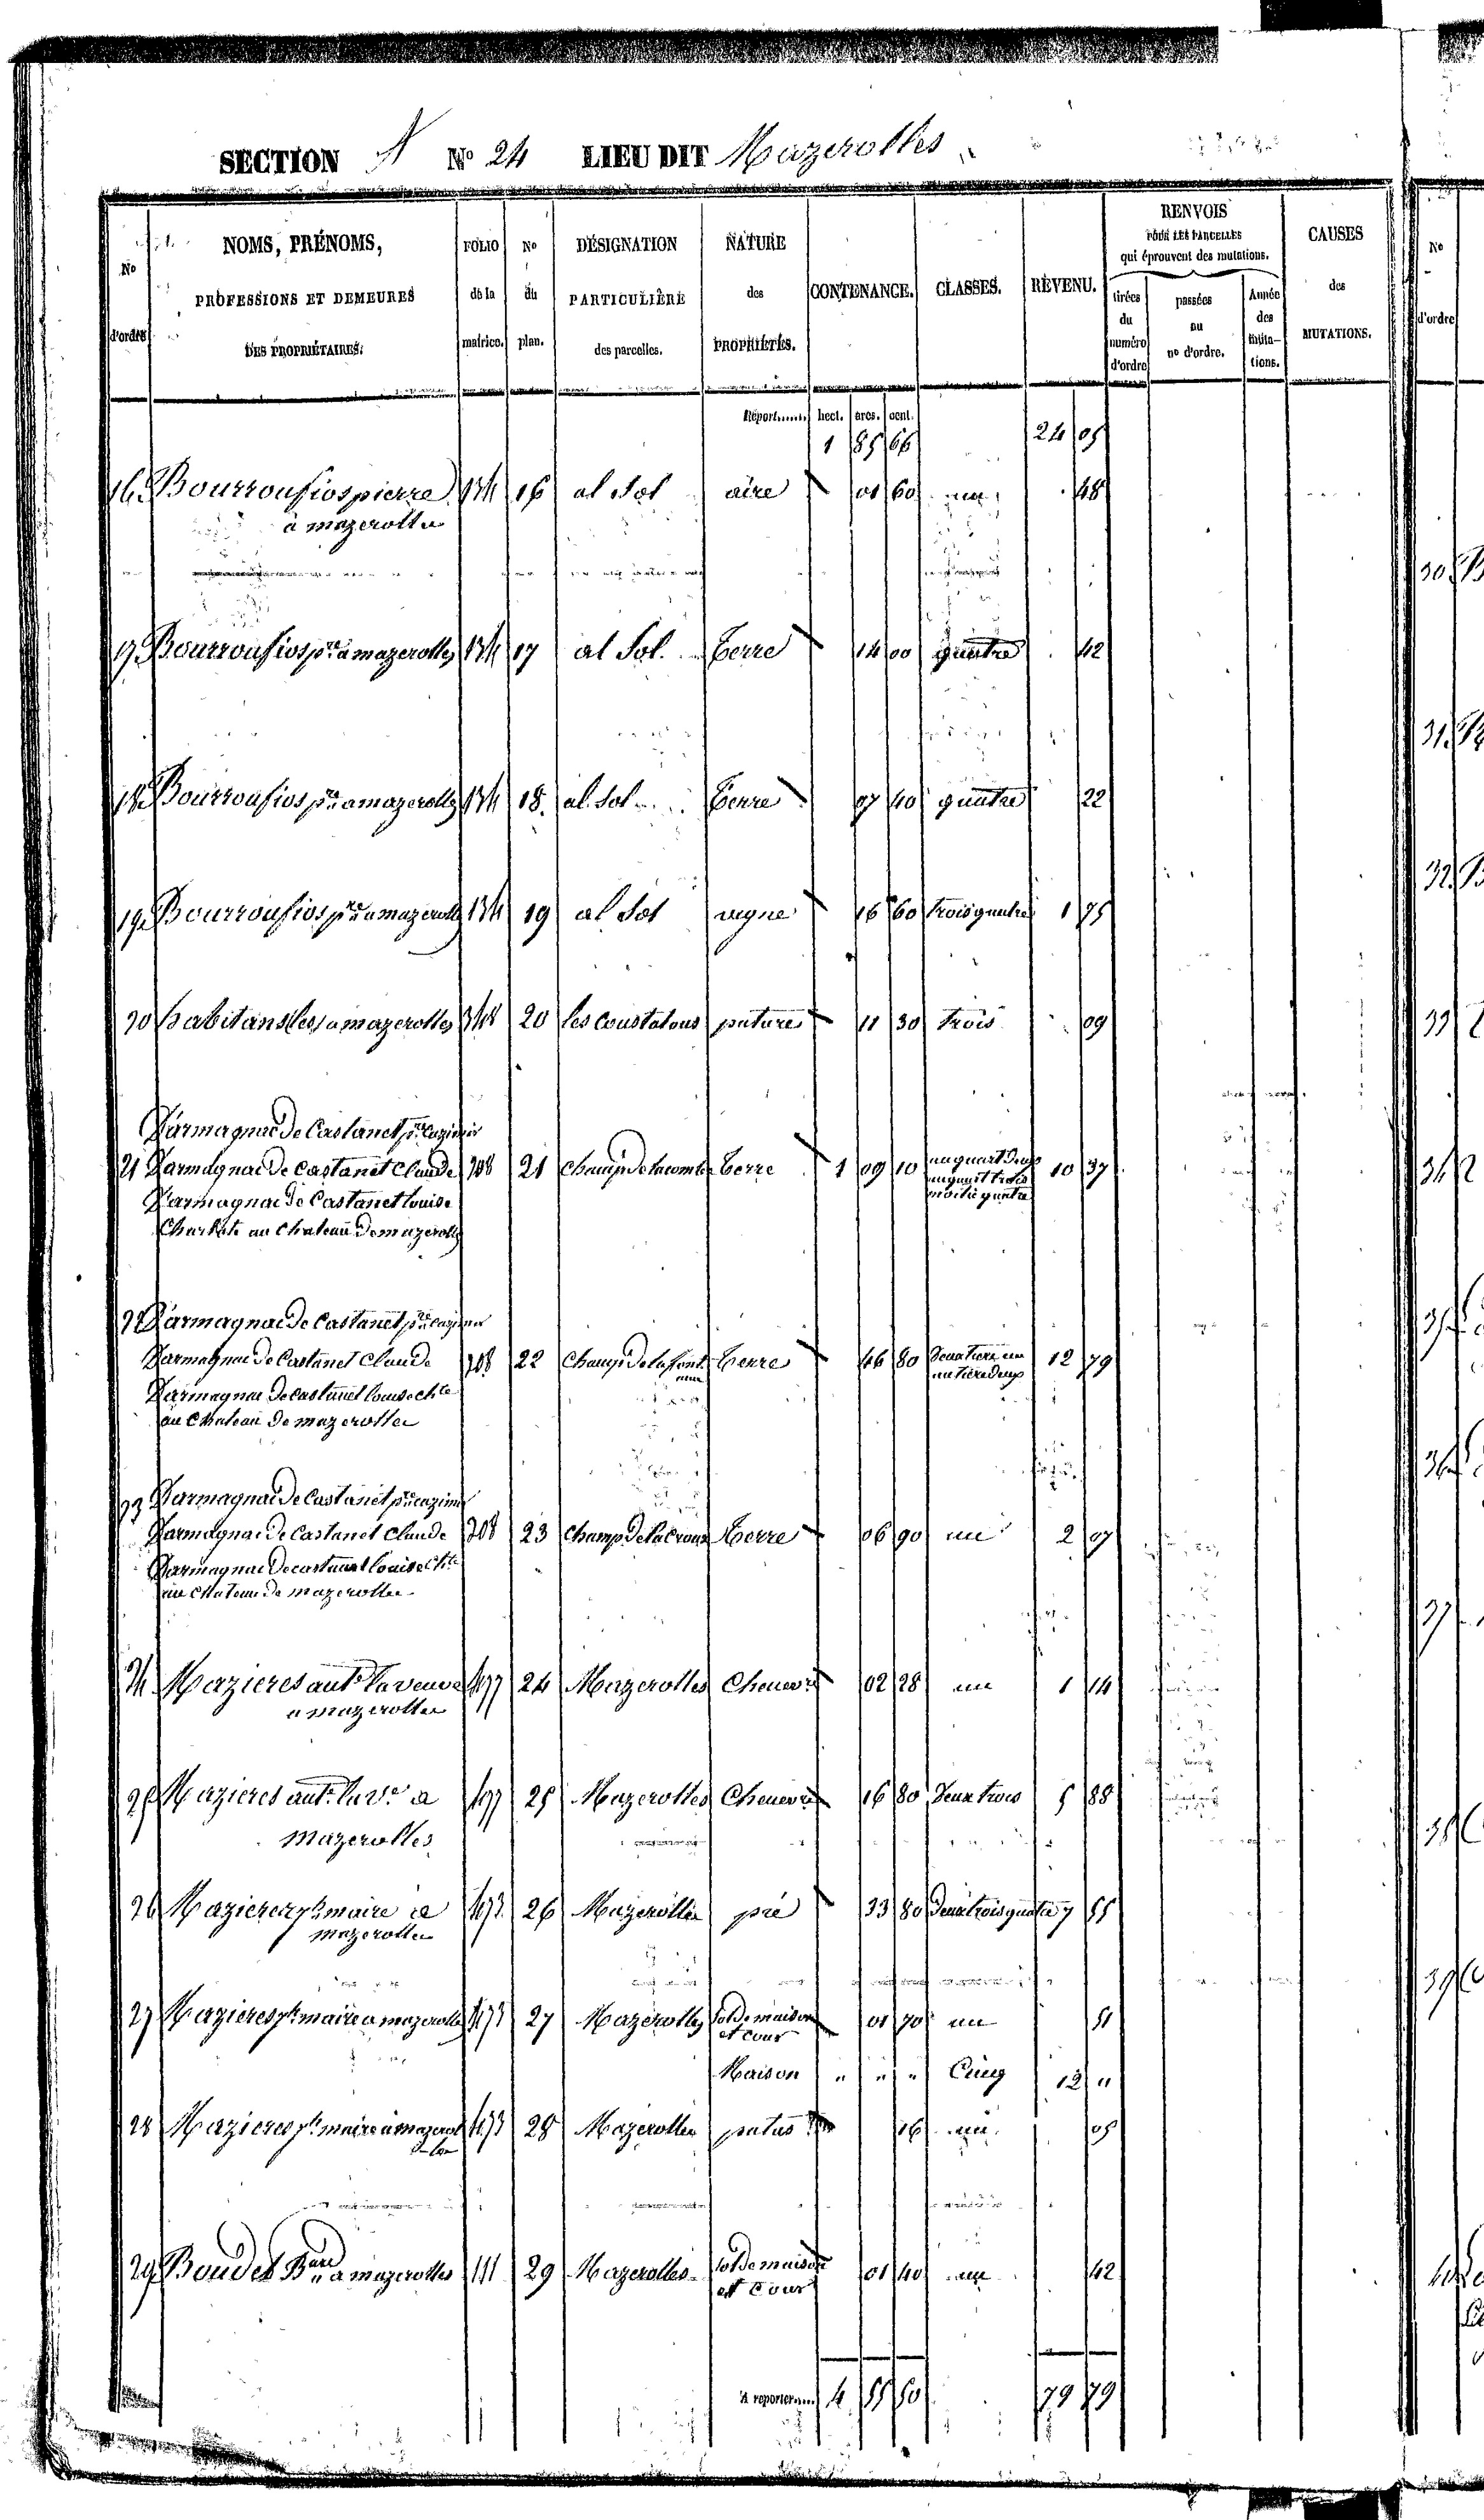 SECTION A No 24 LIEU DIT Mazerolles
No d'ordre
NOMS, PRÉNOMS,
PROFESSIONS ET DEMEURES
DES PROPRIÉTAIRES.
FOLIO de la matrice.
No du plan.
DÉSIGNATION
PARTICULIÈRE
des parcelles.
NATURE
des
PROPRIÉTÉS.
CONTENANCE.
CLASSES.
REVENU.
RENVOIS
POUR LES PARCELLES
qui éprouvent des mutations.
tirées du numéro d'ordre
passées au no d'ordre.
Année des muta-tions.
CAUSES
des
MUTATIONS.
No d'ordre
Report hect. ares. cent.
1 85 66 24 05
16 Bourroufios pierre 134 16 al Sol aire 01 60 un 48
à mazerolles
17 Bourroufios pre a mazerolles 134 17 al Sol. terre 14 00 quatre 42
18 Bourroufios pre a mazerolles 134 18. al Sol terre 07 40 quatre 22
19 Bourroufios pre a mazerolles 134 19 al Sol vigne 16 60 trois quatre 1 75
20 habitans (les) a mazerolles 20 les coustalous pature 11 30 trois 09
Darmagnac de Castanet pre
21 Darmagnac de Castanet Claude 208 21 champ de lacombe terre 1 09 10 un quart deux 10 37
un quart trois
moitié quatre
Darmagnac de Castanet Louise
Charlote au Chateau de mazerolles
22 Darmagnac de Castanet pre
Darmagnac de Castanet Claude 208 22 Champ de la font terre 46 80 deux tiers un 12 79
un tiers deux
Darmagnac de Castanet Louise chte
au Chateau de mazerolles
23 Darmagnac de Castanet pre
Darmagnac de Castanet Claude 208 23 champ de la croux terre 06 90 un 2 07
Darmagnac de castanet Louise chte
au chateau de mazerolles
24 Mazieres ante la veuve 477 24 Mazerolles Chenevre 02 28 un 1 14
a mazerolles
25 Mazieres ante la ve a 477 25 Mazerolles Chenevre 16 80 deux trois 5 88
mazerolles
26 Mazieres maire a 473 26 Mazerolles pré 33 80 deux trois quatre 7 55
mazerolles
27 Mazieres maire a mazerolles 473 27 Mazerolles sol de maison 01 70 un 51
et cour
Maison " " " Cinq 12 "
28 Mazieres maire a mazerolles 473 28 Mazerolles patus 16 un 05
29 Boudet a mazerolles 111 29 Mazerolles sol de maison 01 40 un 42
et cour
A reporter 4 55 50 79 79
30
31
32
33
34
35
36
37
38
39